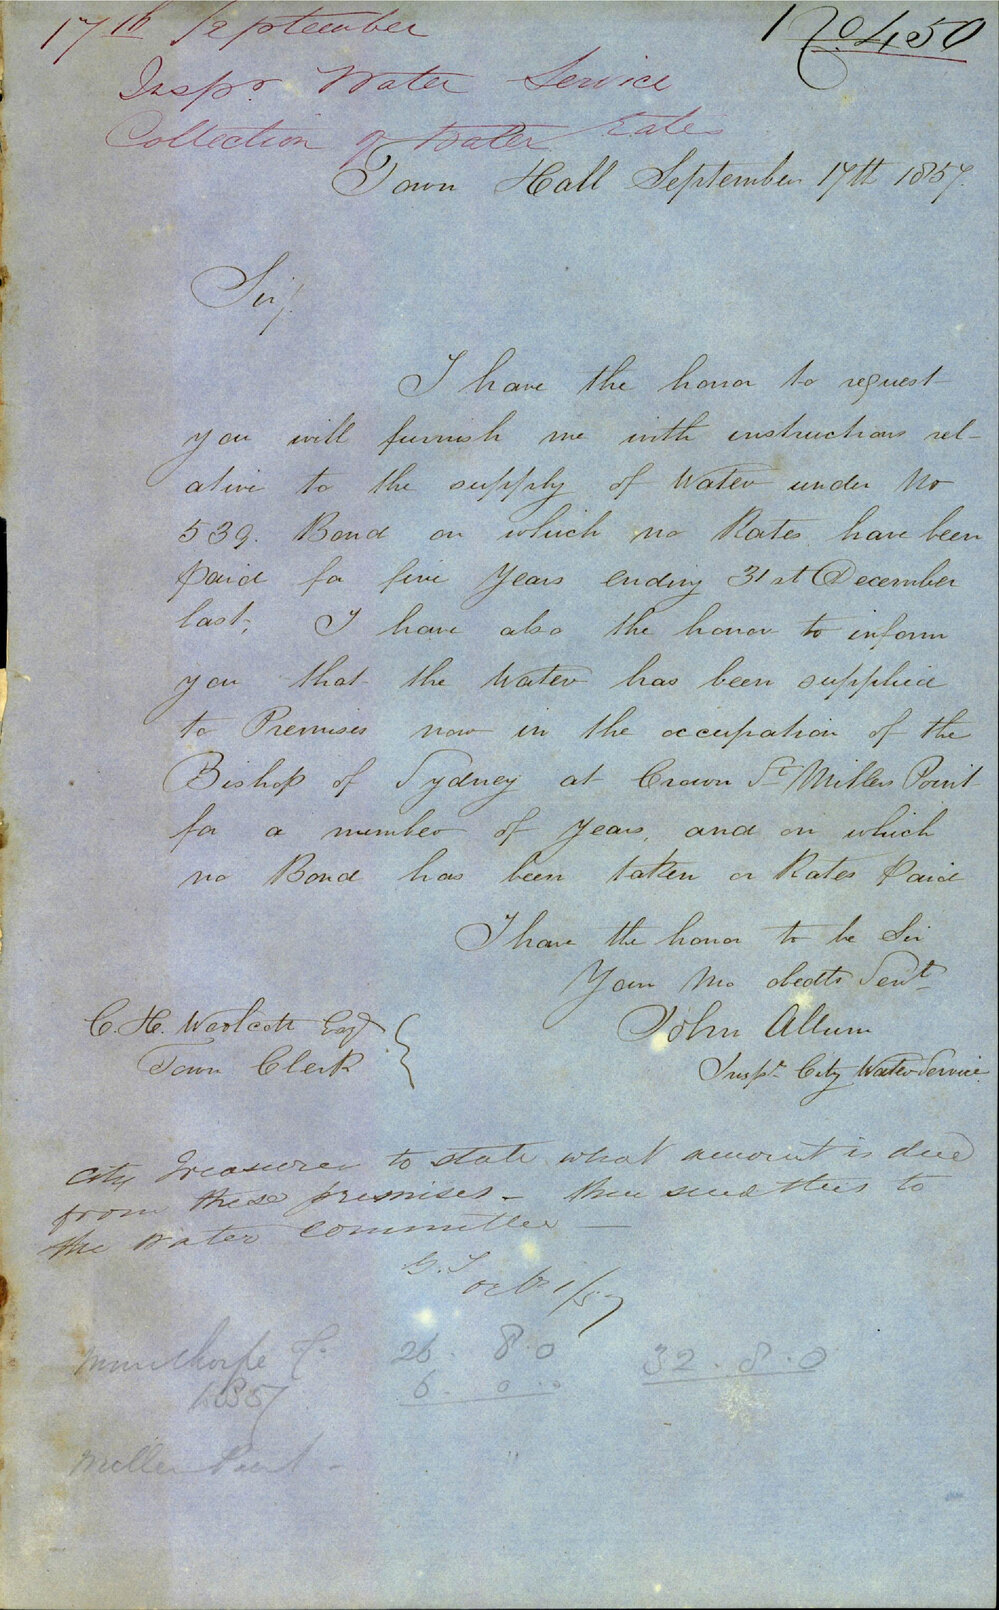 17th September
No 450
Inspr Water Service
Collection of Water Rates
Town Hall September 17th 1857.
Sir,
I have the honor to request
you will furnish me with instructions rel-
ative to the supply of Water under No
539. Bond on which no Rates have been
Paid for five Years ending 31st December
last; I have also the honor to inform
you that the Water has been supplied
to Premises now in the occupation of the
Bishop of Sydney at Crown St Millers Point
for a number of Years, and on which
no Bond has been taken or Rates Paid
I have the honor to be Sir
Your Mo obedt Servt
John Allum
Inspr City Water Service
C. H. Woolcott Esqr
Town Clerk
City Treasurer to state what amount is due
from these premises - then send this to
the Water Committee -
G. T
Oct 1/57
26. 8. 0
32. 8. 0
6. 0. 0
1857
Miller Point -